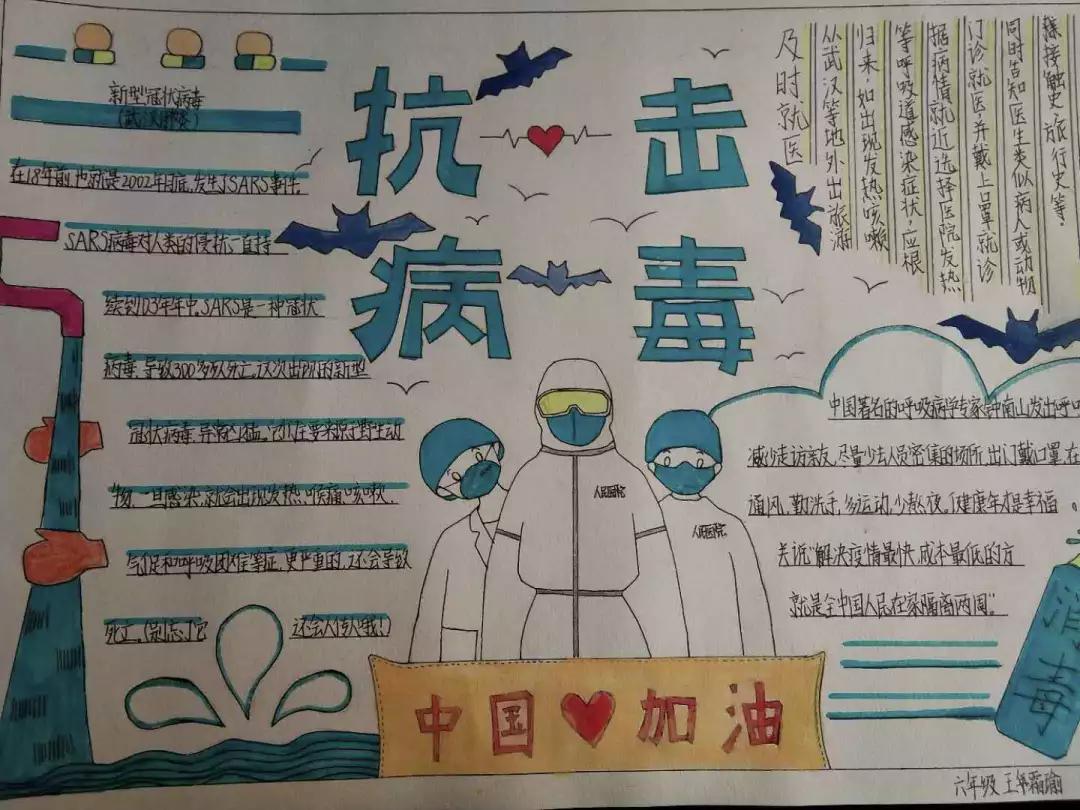 抗击
病毒
新型冠状病毒
(武汉肺炎)
在18年前,也就是2002年,发生了SARS事件
SARS病毒对人类的侵扰一直持
续到03年年中。SARS是一种冠状
病毒,导致300多人死亡,这次出现的新型
冠状病毒,异常凶猛。
物,一旦感染,就会出现发热,喉痛,咳嗽,
气促和呼吸困难等症,更严重的,还会导致
死亡。(别忘了它 还会人传人哦!)
及时就医
从武汉等地外出旅游
归来,如出现发热咳嗽
等呼吸道感染症状,应根
据病情就近选择医院发热
门诊就医,并戴上口罩就诊
同时告知医生类似病人或动物
接触史旅行史等.
中国著名的呼吸病学专家钟南山发出呼
减少走访亲友,尽量少去人员密集的场所,出门戴口罩,在
通风,勤洗手,多运动,少熬夜。(健康年才是幸福
关说"解决疫情最快,成本最低的方
就是全中国人民在家隔离两周"
人民医院
人民医院
消毒
中国加油
六年级 王